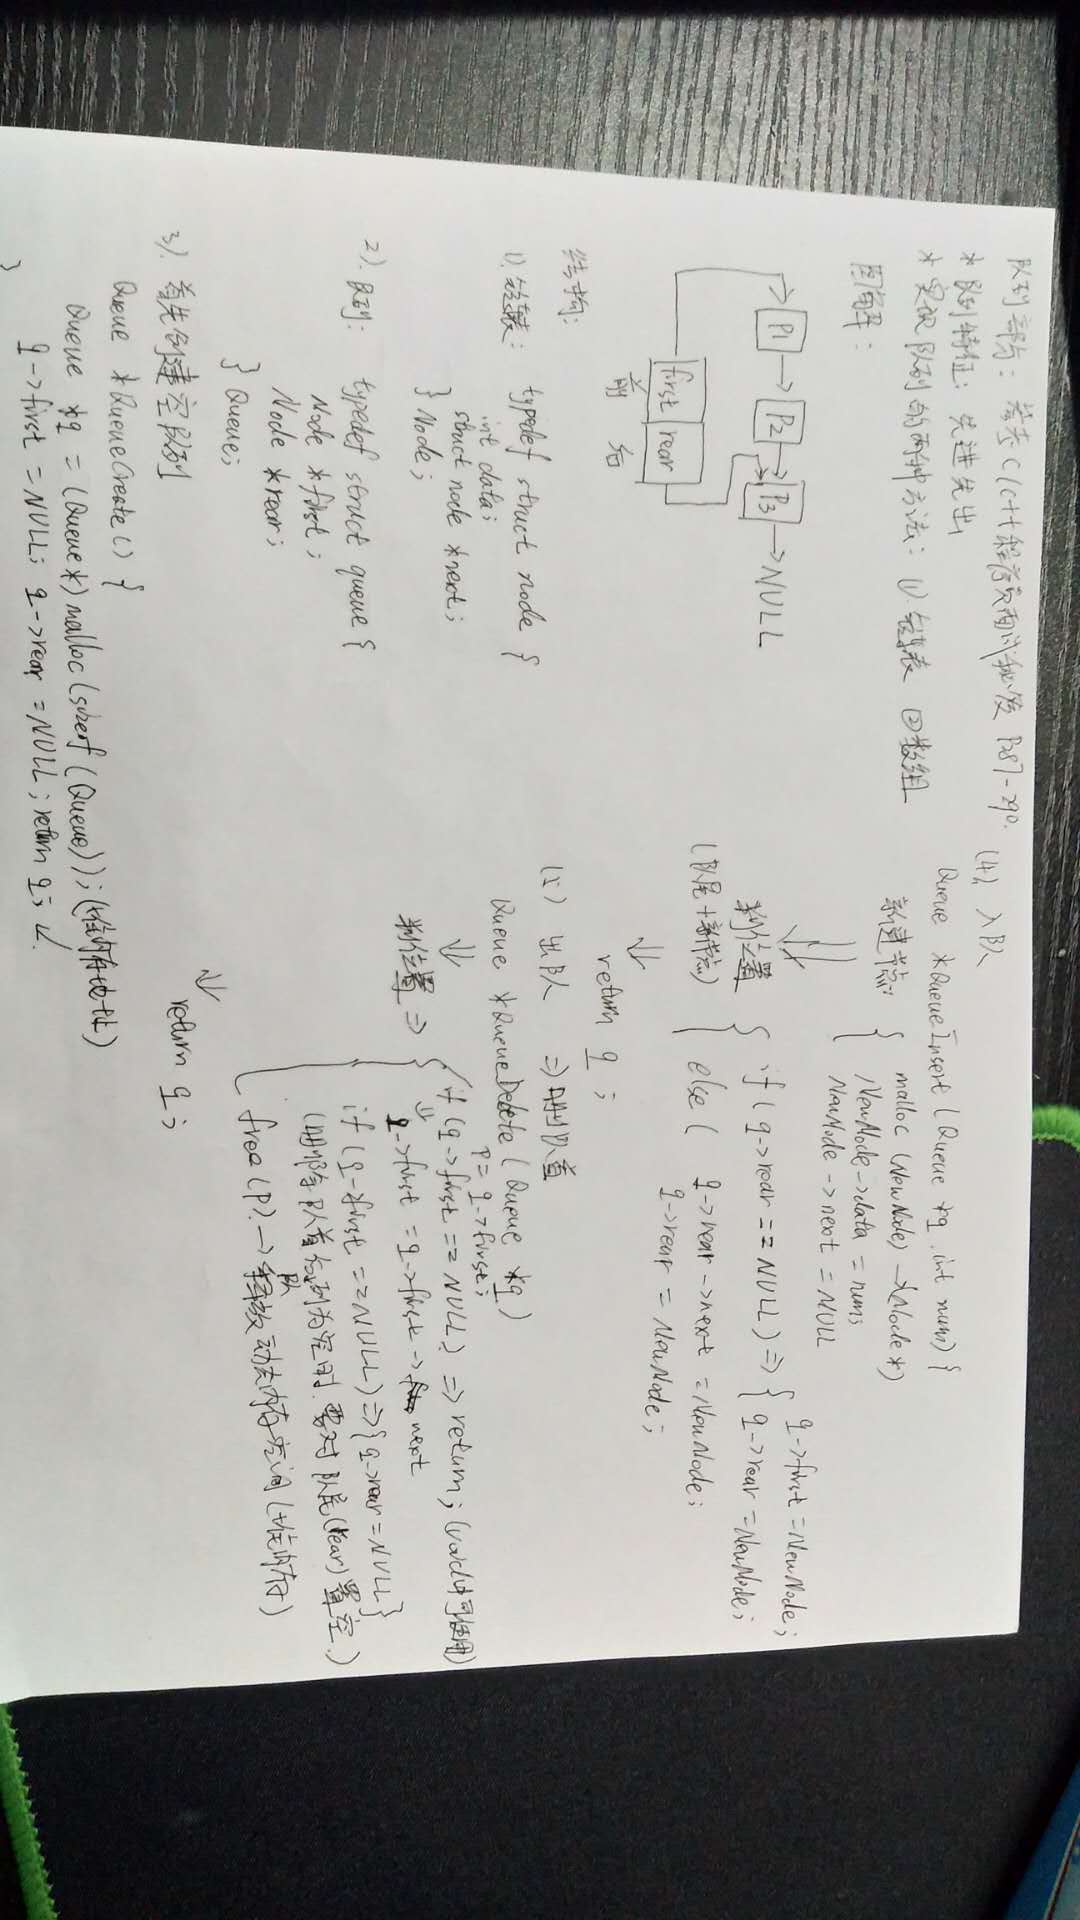 队列部分: 参考C/C++程序员面试秘笈 P287-290.
* 队列特征: 先进先出
* 实现队列的两种方法: ①链表 ②数组
图解:
P1 → P2 → P3 → NULL
first rear
前 后
结构:
1). 链表: typedef struct node {
int data;
struct node *next;
} Node;
2). 队列: typedef struct queue {
Node *first;
Node *rear;
} Queue;
3). 首先创建空队列
Queue *QueueCreate() {
Queue *q = (Queue*) malloc (sizeof (Queue)); (堆内存地址)
q->first = NULL; q->rear = NULL; return q;
}
(4). 入队
Queue *QueueInsert (Queue *q, int num) {
新建节点: { malloc (NewNode) → (Node *)
NewNode->data = num;
NewNode->next = NULL
判位置 { if (q->rear == NULL) => { q->first = NewNode;
q->rear = NewNode;
(队尾+新节点) else ( q->rear->next = NewNode;
q->rear = NewNode;
return q;
(5) 出队 => 删队首
Queue *QueueDelete (Queue *q)
p = q->first;
if (q->first == NULL) => return; (void中可使用)
判位置 => { q->first = q->first-> next
if (q->first == NULL) => {q->rear = NULL}
(删除队首后队列为空时, 要对队尾(rear)置空.)
free (p). → 释放动态内存空间 (堆内存)
return q;